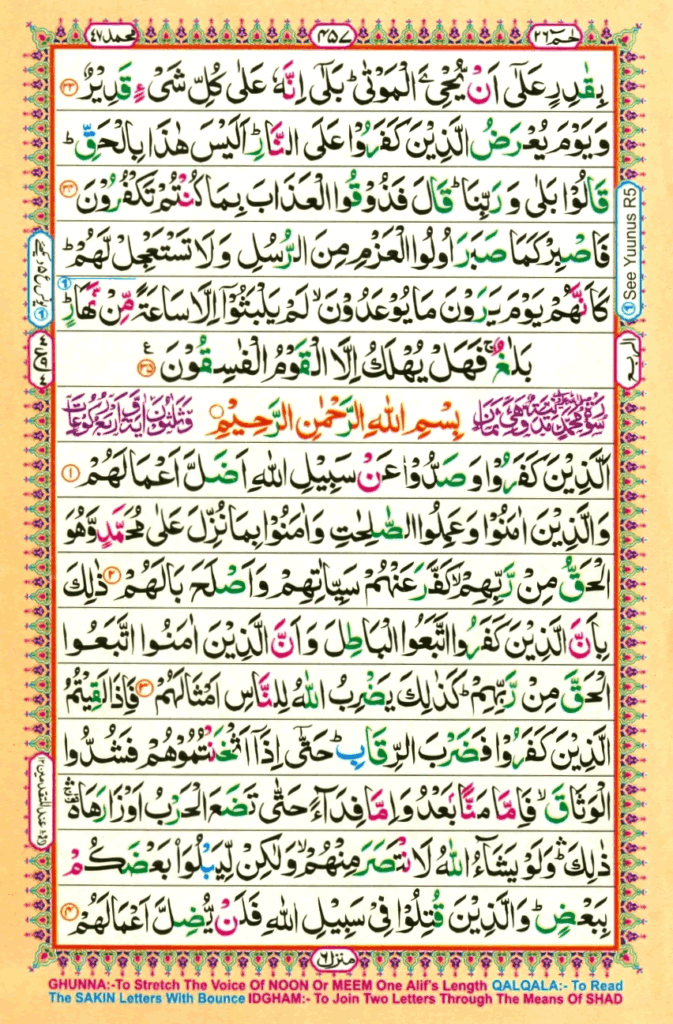 حٰمٓ ٢٦
٤٥٧
محمد ٤٧
بِقٰدِرٍ عَلٰۤى اَنْ یُّحْیِۦَ الْمَوْتٰى ؕ بَلٰۤى اِنَّهٗ عَلٰى كُلِّ شَیْءٍ قَدِیْرٌ ﴿۳۳﴾
وَ یَوْمَ یُعْرَضُ الَّذِیْنَ كَفَرُوْا عَلَى النَّارِ ؕ اَلَیْسَ هٰذَا بِالْحَقِّ ؕ
قَالُوْا بَلٰى وَ رَبِّنَا ؕ قَالَ فَذُوْقُوا الْعَذَابَ بِمَا كُنْتُمْ تَكْفُرُوْنَ ﴿۳۴﴾
فَاصْبِرْ كَمَا صَبَرَ اُولُوا الْعَزْمِ مِنَ الرُّسُلِ وَ لَا تَسْتَعْجِلْ لَّهُمْ ؕ
كَاَنَّهُمْ یَوْمَ یَرَوْنَ مَا یُوْعَدُوْنَ ۙ لَمْ یَلْبَثُوْۤا اِلَّا سَاعَةً مِّنْ نَّهَارٍ ؕ
بَلٰغٌ ۚ فَهَلْ یُهْلَكُ اِلَّا الْقَوْمُ الْفٰسِقُوْنَ ﴿۳۵﴾ ع
بِسْمِ اللهِ الرَّحْمٰنِ الرَّحِیْمِ
اَلَّذِیْنَ كَفَرُوْا وَ صَدُّوْا عَنْ سَبِیْلِ اللهِ اَضَلَّ اَعْمَالَهُمْ ﴿۱﴾
وَ الَّذِیْنَ اٰمَنُوْا وَ عَمِلُوا الصّٰلِحٰتِ وَ اٰمَنُوْا بِمَا نُزِّلَ عَلٰى مُحَمَّدٍ وَّ هُوَ
الْحَقُّ مِنْ رَّبِّهِمْ ۙ كَفَّرَ عَنْهُمْ سَیِّاٰتِهِمْ وَ اَصْلَحَ بَالَهُمْ ﴿۲﴾ ذٰلِكَ
بِاَنَّ الَّذِیْنَ كَفَرُوا اتَّبَعُوا الْبَاطِلَ وَ اَنَّ الَّذِیْنَ اٰمَنُوا اتَّبَعُوا
الْحَقَّ مِنْ رَّبِّهِمْ ؕ كَذٰلِكَ یَضْرِبُ اللهُ لِلنَّاسِ اَمْثَالَهُمْ ﴿۳﴾ فَاِذَا لَقِیْتُمُ
الَّذِیْنَ كَفَرُوْا فَضَرْبَ الرِّقَابِ ؕ حَتّٰۤى اِذَاۤ اَثْخَنْتُمُوْهُمْ فَشُدُّوا
الْوَثَاقَ ۙ فَاِمَّا مَنًّۢا بَعْدُ وَ اِمَّا فِدَآءً حَتّٰى تَضَعَ الْحَرْبُ اَوْزَارَهَا
ذٰلِكَ ۛؕ وَ لَوْ یَشَآءُ اللهُ لَانْتَصَرَ مِنْهُمْ ۙ وَ لٰكِنْ لِّیَبْلُوَاۡ بَعْضَكُمْ
بِبَعْضٍ ؕ وَ الَّذِیْنَ قُتِلُوْا فِیْ سَبِیْلِ اللهِ فَلَنْ یُّضِلَّ اَعْمَالَهُمْ ﴿۴﴾
See Yuunus R5
منزل ٦
GHUNNA:-To Stretch The Voice Of NOON Or MEEM One Alif's Length QALQALA:- To Read
The SAKIN Letters With Bounce IDGHAM:- To Join Two Letters Through The Means Of SHAD